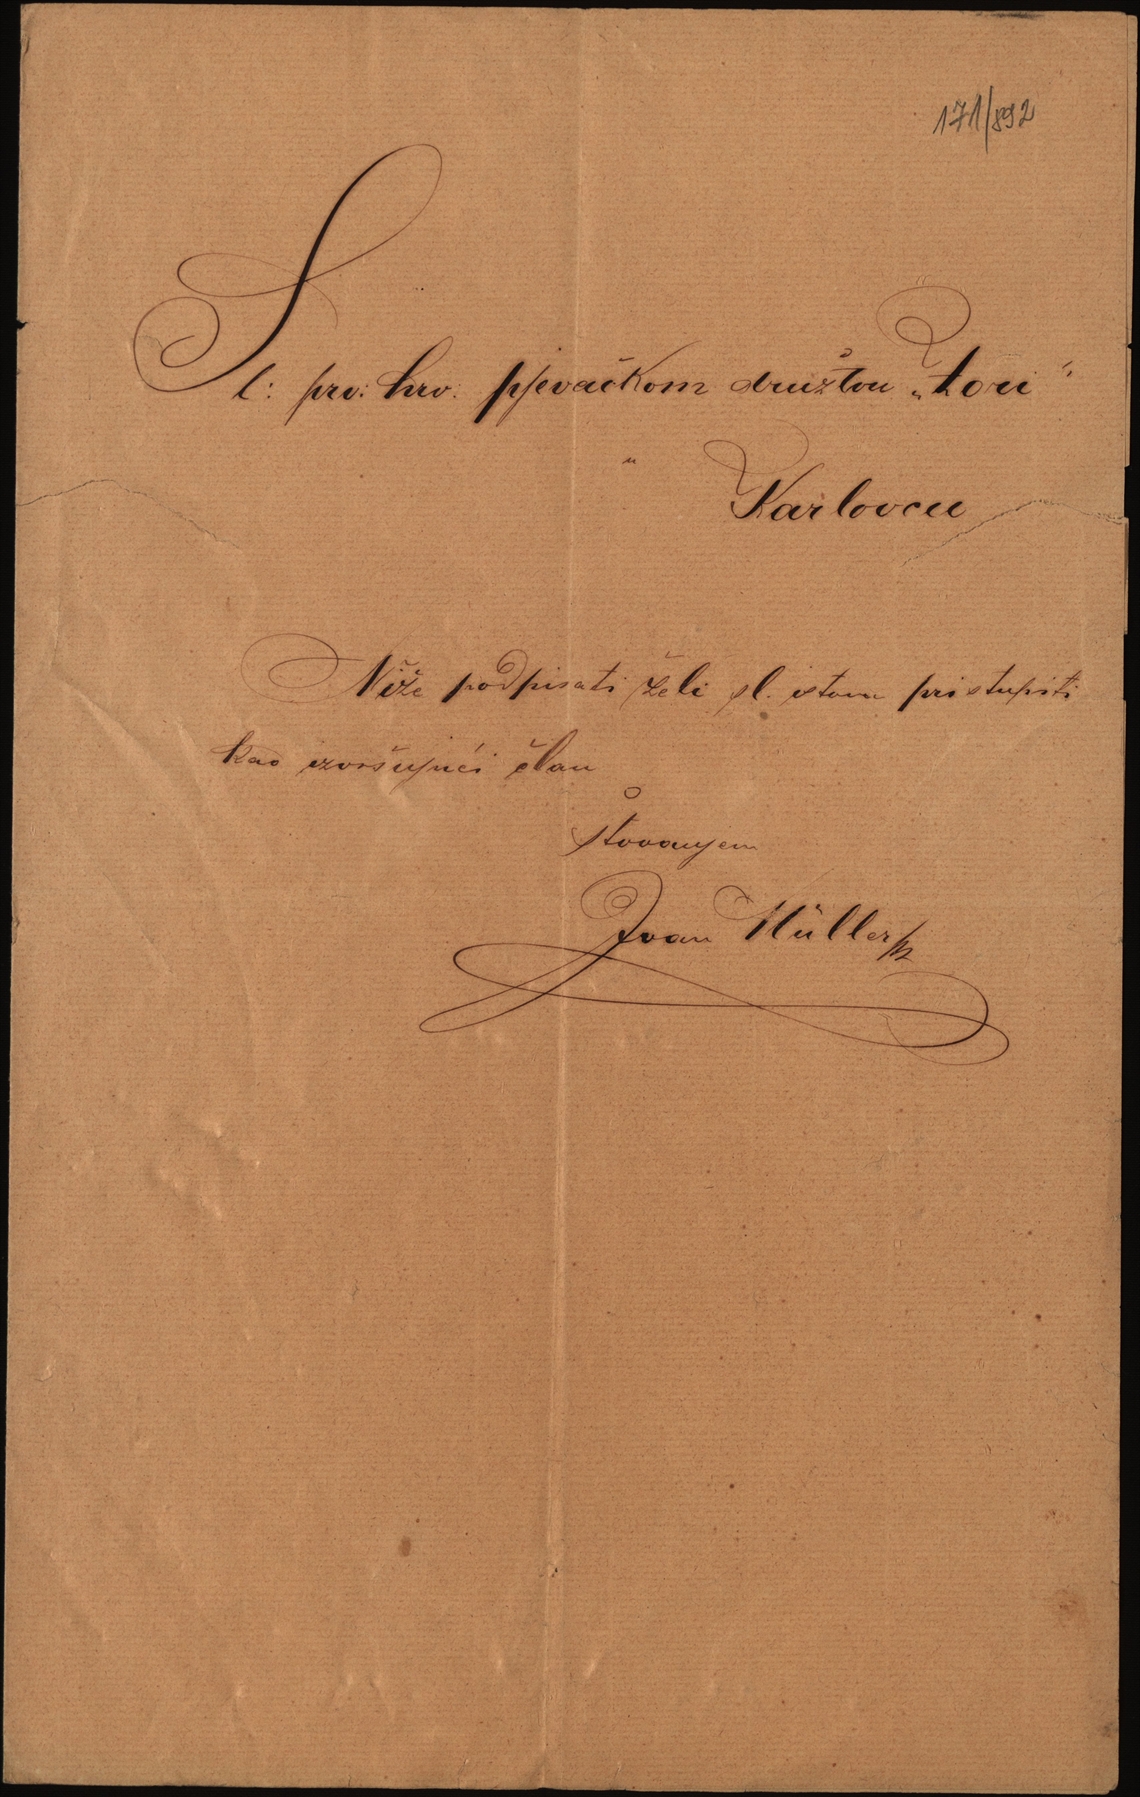 171/892
Sl: prv: hrv: pjevačkom družtvu „Zori“
u
Karlovcu
Niže podpisati želi sl. istom pristupiti
kao izvršujući član
štovanjem
Ivan Müller